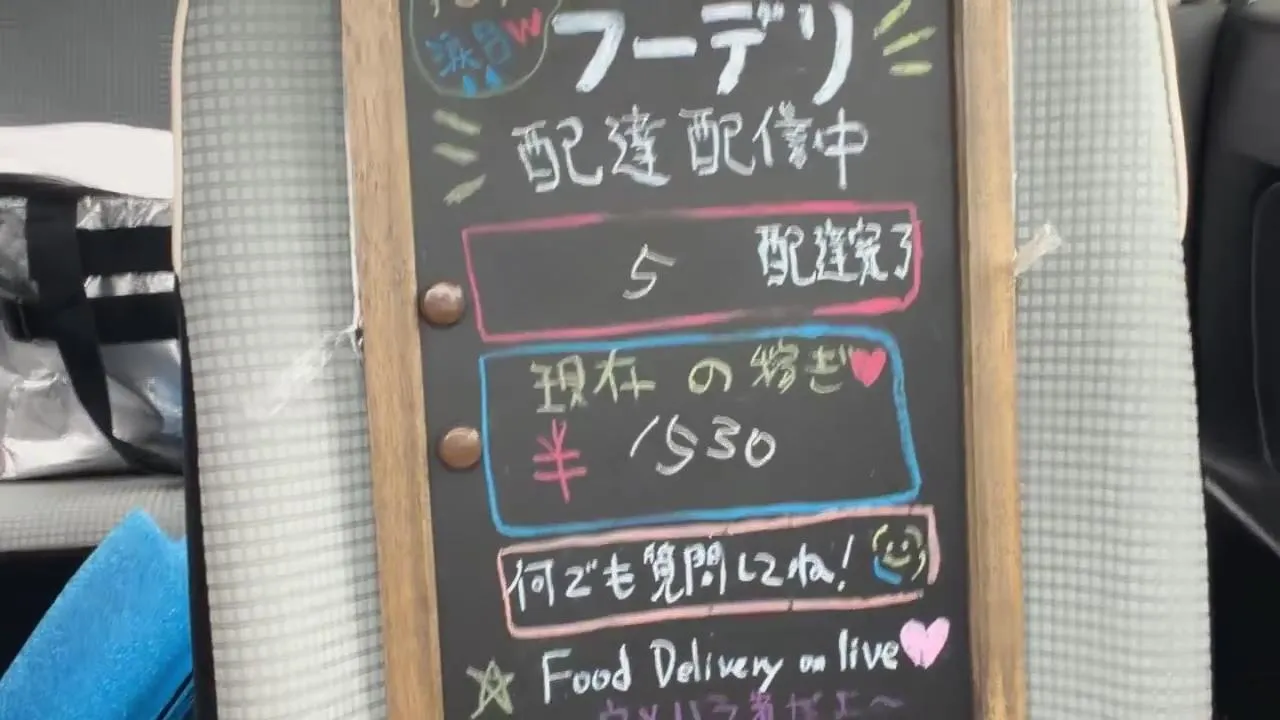 涙目W
フーデリ
配達配信中
5 配達完了
現在の稼ぎ♥
¥ 1530
何でも質問してね!
☆ Food Delivery on live♥